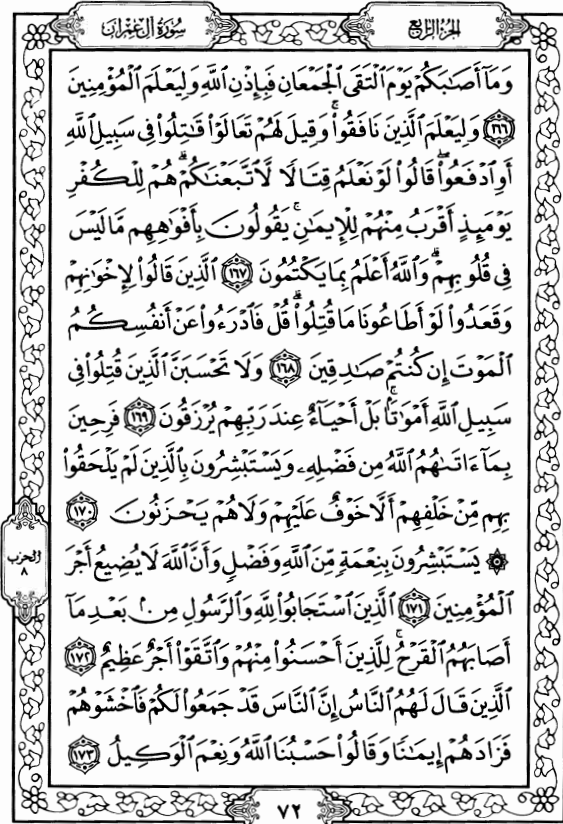 الجزء الرابع
سورة آل عمران
وَمَآ أَصَـٰبَكُمْ يَوْمَ ٱلْتَقَى ٱلْجَمْعَانِ فَبِإِذْنِ ٱللَّهِ وَلِيَعْلَمَ ٱلْمُؤْمِنِينَ
﴿١٦٦﴾ وَلِيَعْلَمَ ٱلَّذِينَ نَافَقُوا۟ۚ وَقِيلَ لَهُمْ تَعَالَوْا۟ قَـٰتِلُوا۟ فِى سَبِيلِ ٱللَّهِ
أَوِ ٱدْفَعُوا۟ۖ قَالُوا۟ لَوْ نَعْلَمُ قِتَالًا لَّٱتَّبَعْنَـٰكُمْۗ هُمْ لِلْكُفْرِ
يَوْمَئِذٍ أَقْرَبُ مِنْهُمْ لِلْإِيمَـٰنِۚ يَقُولُونَ بِأَفْوَٰهِهِم مَّا لَيْسَ
فِى قُلُوبِهِمْۗ وَٱللَّهُ أَعْلَمُ بِمَا يَكْتُمُونَ ﴿١٦٧﴾ ٱلَّذِينَ قَالُوا۟ لِإِخْوَٰنِهِمْ
وَقَعَدُوا۟ لَوْ أَطَاعُونَا مَا قُتِلُوا۟ۗ قُلْ فَٱدْرَءُوا۟ عَنْ أَنفُسِكُمُ
ٱلْمَوْتَ إِن كُنتُمْ صَـٰدِقِينَ ﴿١٦٨﴾ وَلَا تَحْسَبَنَّ ٱلَّذِينَ قُتِلُوا۟ فِى
سَبِيلِ ٱللَّهِ أَمْوَٰتًۢاۚ بَلْ أَحْيَآءٌ عِندَ رَبِّهِمْ يُرْزَقُونَ ﴿١٦٩﴾ فَرِحِينَ
بِمَآ ءَاتَىٰهُمُ ٱللَّهُ مِن فَضْلِهِۦ وَيَسْتَبْشِرُونَ بِٱلَّذِينَ لَمْ يَلْحَقُوا۟
بِهِم مِّنْ خَلْفِهِمْ أَلَّا خَوْفٌ عَلَيْهِمْ وَلَا هُمْ يَحْزَنُونَ ﴿١٧٠﴾
۞ يَسْتَبْشِرُونَ بِنِعْمَةٍ مِّنَ ٱللَّهِ وَفَضْلٍ وَأَنَّ ٱللَّهَ لَا يُضِيعُ أَجْرَ
ٱلْمُؤْمِنِينَ ﴿١٧١﴾ ٱلَّذِينَ ٱسْتَجَابُوا۟ لِلَّهِ وَٱلرَّسُولِ مِنۢ بَعْدِ مَآ
أَصَابَهُمُ ٱلْقَرْحُۚ لِلَّذِينَ أَحْسَنُوا۟ مِنْهُمْ وَٱتَّقَوْا۟ أَجْرٌ عَظِيمٌ ﴿١٧٢﴾
ٱلَّذِينَ قَالَ لَهُمُ ٱلنَّاسُ إِنَّ ٱلنَّاسَ قَدْ جَمَعُوا۟ لَكُمْ فَٱخْشَوْهُمْ
فَزَادَهُمْ إِيمَـٰنًا وَقَالُوا۟ حَسْبُنَا ٱللَّهُ وَنِعْمَ ٱلْوَكِيلُ ﴿١٧٣﴾
الحزب
٨
٧٢